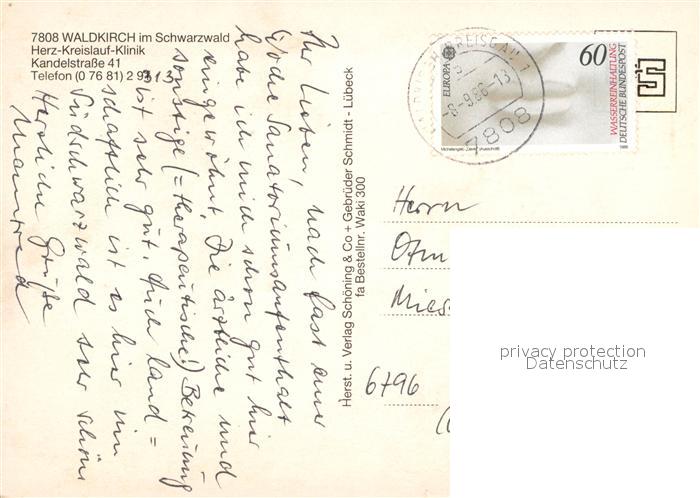 7808 WALDKIRCH im Schwarzwald
Herz-Kreislauf-Klinik
Kandelstraße 41
Telefon (0 76 81) 2 93 13
Ihr Lieben, nach fast einer
Woche Sanatoriumsaufenthalt
habe ich mich schon gut hier
eingewöhnt. Die ärztliche und
sonstige (= therapeutische!) Betreuung
ist sehr gut. Auch land=
schaftlich ist es hier im
Südschwarzwald sehr schön
Herzliche Grüße
Manfred
Herst. u. Verlag Schöning & Co + Gebrüder Schmidt - Lübeck
fa Bestellnr. Waki 300
BREISGAU 1
-8-9.86-13
7808
EUROPA
60
WASSERREINHALTUNG
DEUTSCHE BUNDESPOST
1986
Herrn
Otm
Mies
6796
privacy protection
Datenschutz